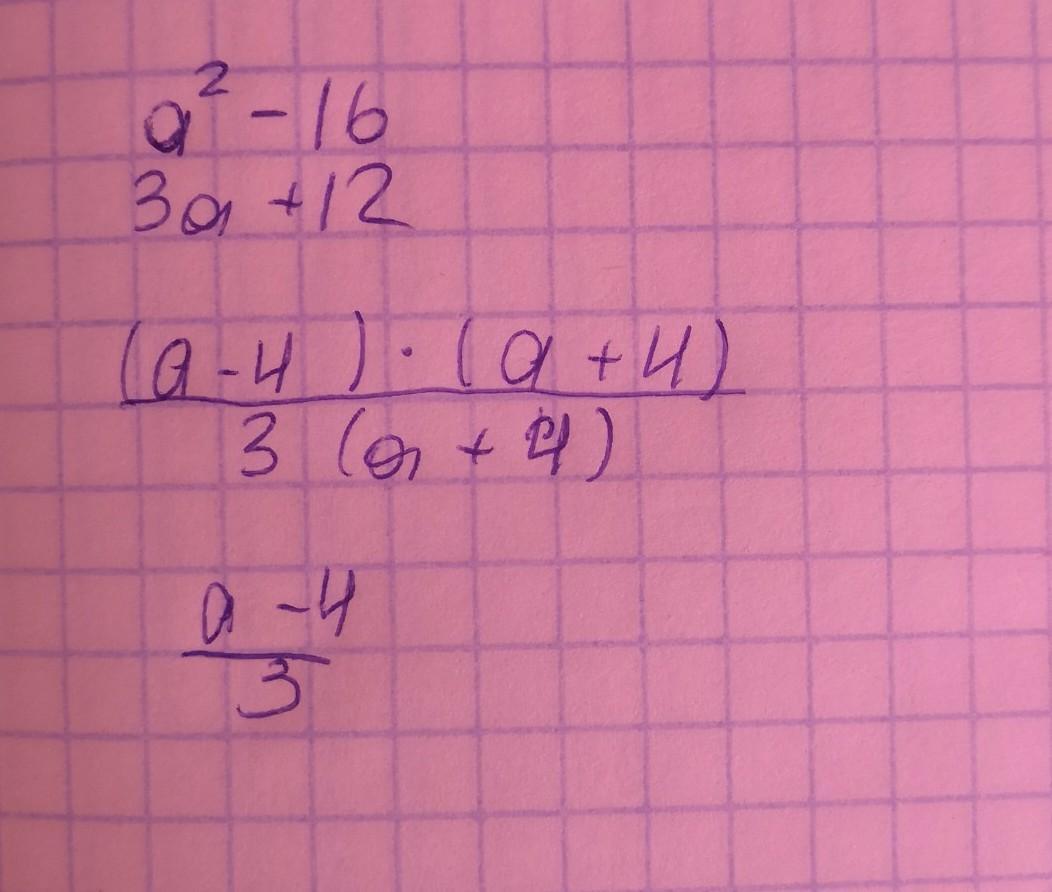 a² - 16
3a + 12
(a - 4) · (a + 4)
3 (a + 4)
a - 4
3